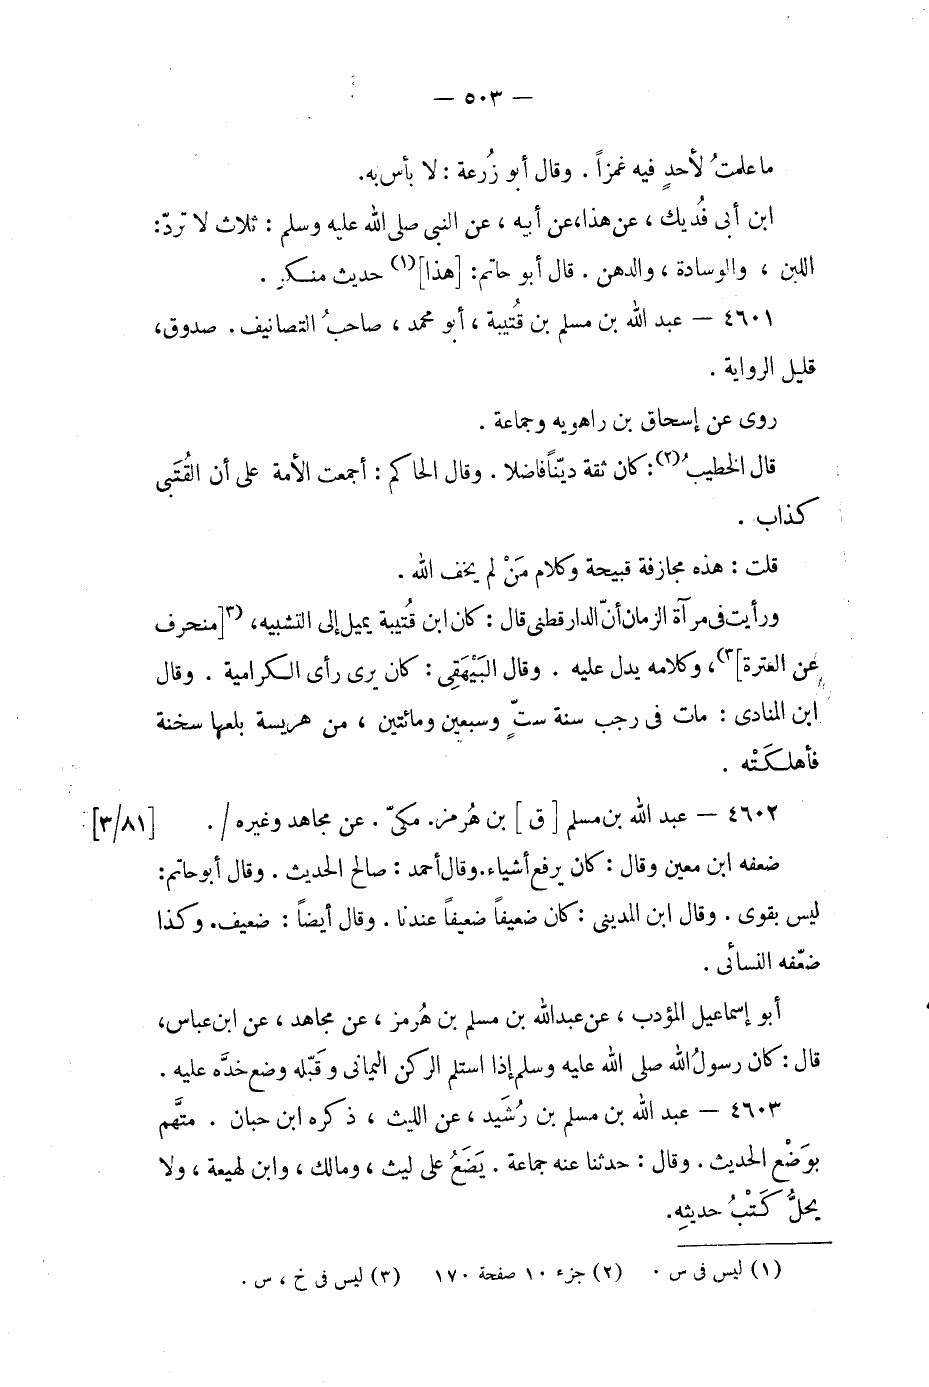 — ٥٠٣ —
ما علمتُ لأحدٍ فيه غمزاً . وقال أبو زُرعة : لا بأس به.
ابن أبى فُديك ، عن هذا،عن أبيه ، عن النبى صلى الله عليه وسلم : ثلاث لا تردّ:
اللبن ، والوسادة ، والدهن . قال أبو حاتم: [هذا](١) حديث منكر .
٤٦٠١ — عبد الله بن مسلم بن قُتيبة ، أبو محمد ، صاحبُ التصانيف. صدوق،
قليل الرواية .
روى عن إسحاق بن راهويه وجماعة .
قال الخطيبُ(٢): كان ثقة ديّناً فاضلا . وقال الحاكم : أجمعت الأمة على أن القُتَبى
كذاب .
قلت : هذه مجازفة قبيحة وكلام مَنْ لم يخف الله .
ورأيت فى مرآة الزمان أنّ الدارقطنى قال : كان ابن قُتيبة يميل إلى التشبيه، (٣[منحرف
عن العترة]٣)، وكلامه يدل عليه . وقال البَيْهَقِى : كان يرى رأى الكرامية . وقال
ابن المنادى : مات فى رجب سنة ستٍّ وسبعين ومائتين ، من هريسة بلعها سخنة
فأهلكَتْه .
٤٦٠٢ — عبد الله بن مسلم [ ق ] بن هُرمز. مكىّ . عن مجاهد وغيره / . [٣/٨١]
ضعفه ابن معين وقال : كان يرفع أشياء.وقال أحمد : صالح الحديث . وقال أبو حاتم:
ليس بقوى . وقال ابن المدينى : كان ضعيفاً ضعيفاً عندنا . وقال أيضاً : ضعيف. وكذا
ضعّفه النسائى .
أبو إسماعيل المؤدب ، عن عبدالله بن مسلم بن هُرمز ، عن مجاهد ، عن ابن عباس،
قال : كان رسولُ الله صلى الله عليه وسلم إذا استلم الركن اليمانى وقبّله وضع خدَّه عليه .
٤٦٠٣ — عبد الله بن مسلم بن رُشَيد ، عن الليث ، ذكره ابن حبان . متَّهم
بوَضْع الحديث . وقال : حدثنا عنه جماعة . يَضَعُ على ليث ، ومالك ، وابن لهيعة ، ولا
يحلُّ كَتْبُ حديثهِ.
(١) ليس فى س . (٢) جزء ١٠ صفحة ١٧٠ (٣) ليس فى خ ، س .